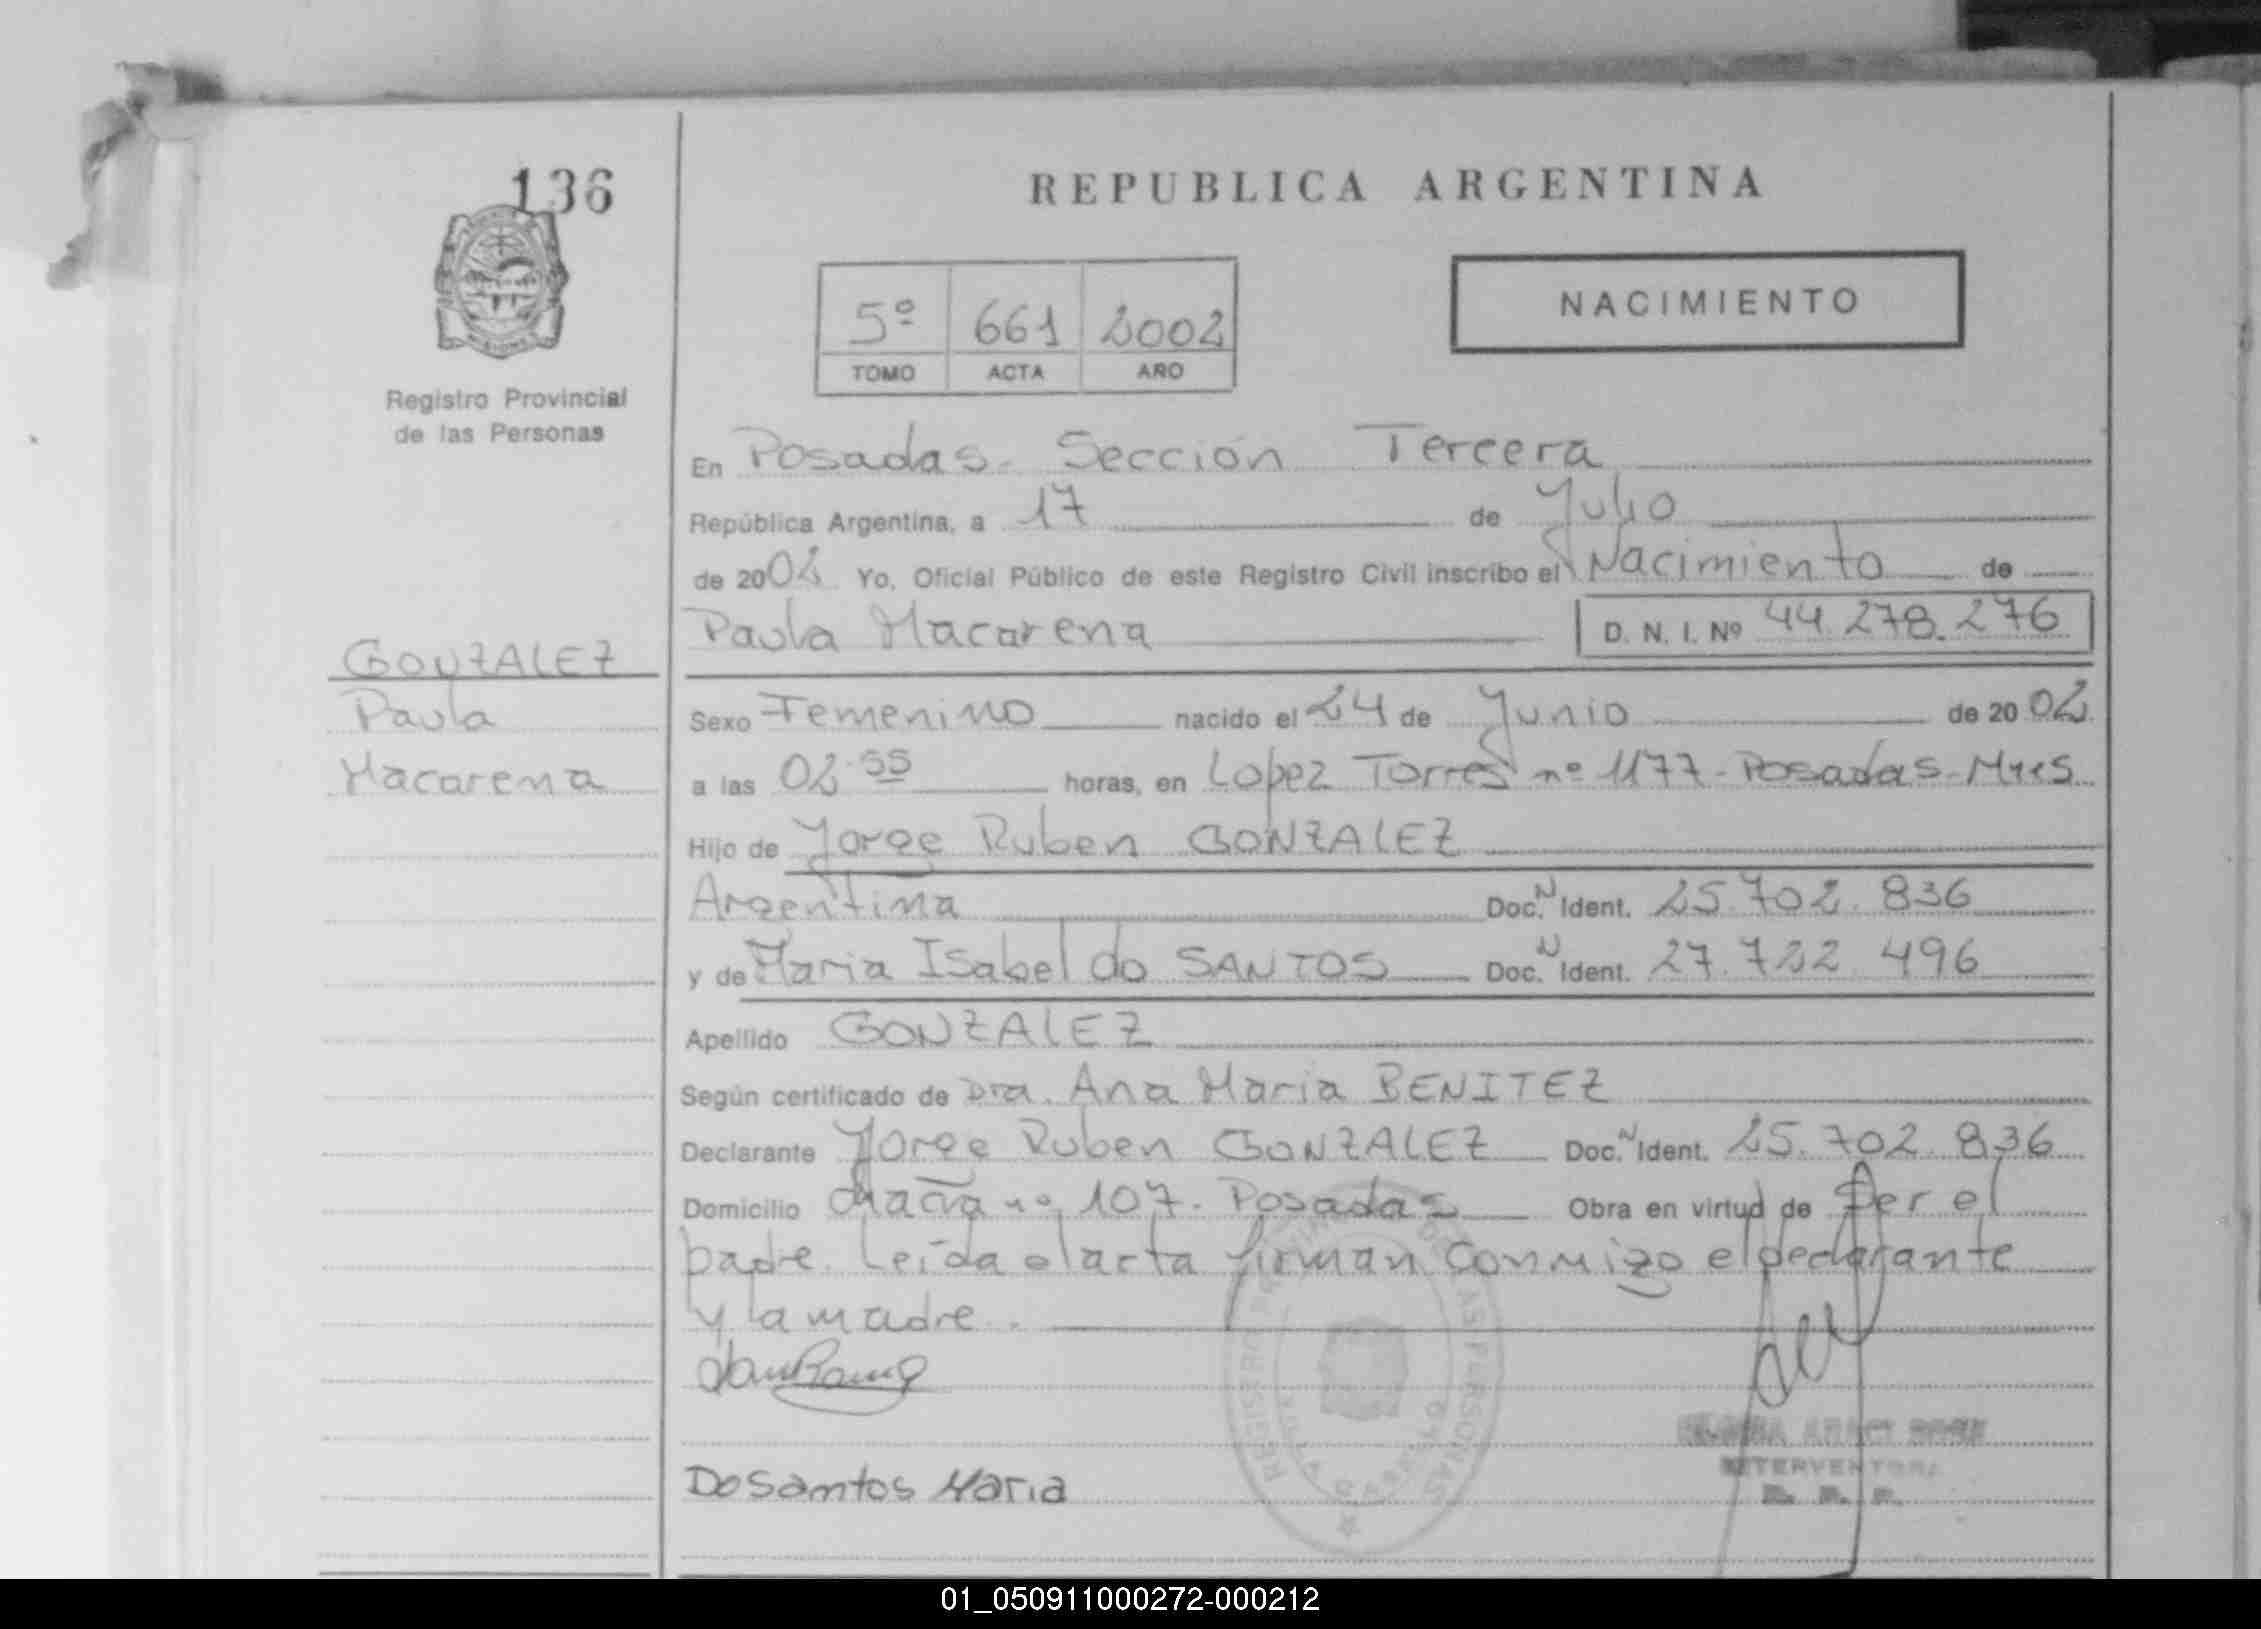 136
REPUBLICA ARGENTINA
NACIMIENTO
5º 661 2002
TOMO ACTA AÑO
Registro Provincial
de las Personas
En Posadas. Sección Tercera
República Argentina, a 17 de Julio
de 2002 Yo, Oficial Público de este Registro Civil inscribo el Nacimiento de
Paula Macarena D. N. I. Nº 44.278.276
GONZALEZ
Paula
Macarena
Sexo Femenino nacido el 24 de Junio de 2002
a las 02.55 horas, en Lopez Torres nº 1177 - Posadas - Mnes
Hijo de Jorge Ruben GONZALEZ
Argentina Doc. N Ident. 25.702.836
y de Maria Isabel do SANTOS Doc. N Ident. 27.722.496
Apellido GONZALEZ
Según certificado de Dra. Ana Maria BENITEZ
Declarante Jorge Ruben GONZALEZ Doc. N Ident. 25.702.836
Domicilio nº 107. Posadas Obra en virtud de Ser el
padre. Leída el acta firman conmigo el declarante
y la madre.
Do Santos Maria
REGISTRO PROVINCIAL DE LAS PERSONAS
INTERVENTORA
R. P. P.
MISIONES
01_050911000272-000212